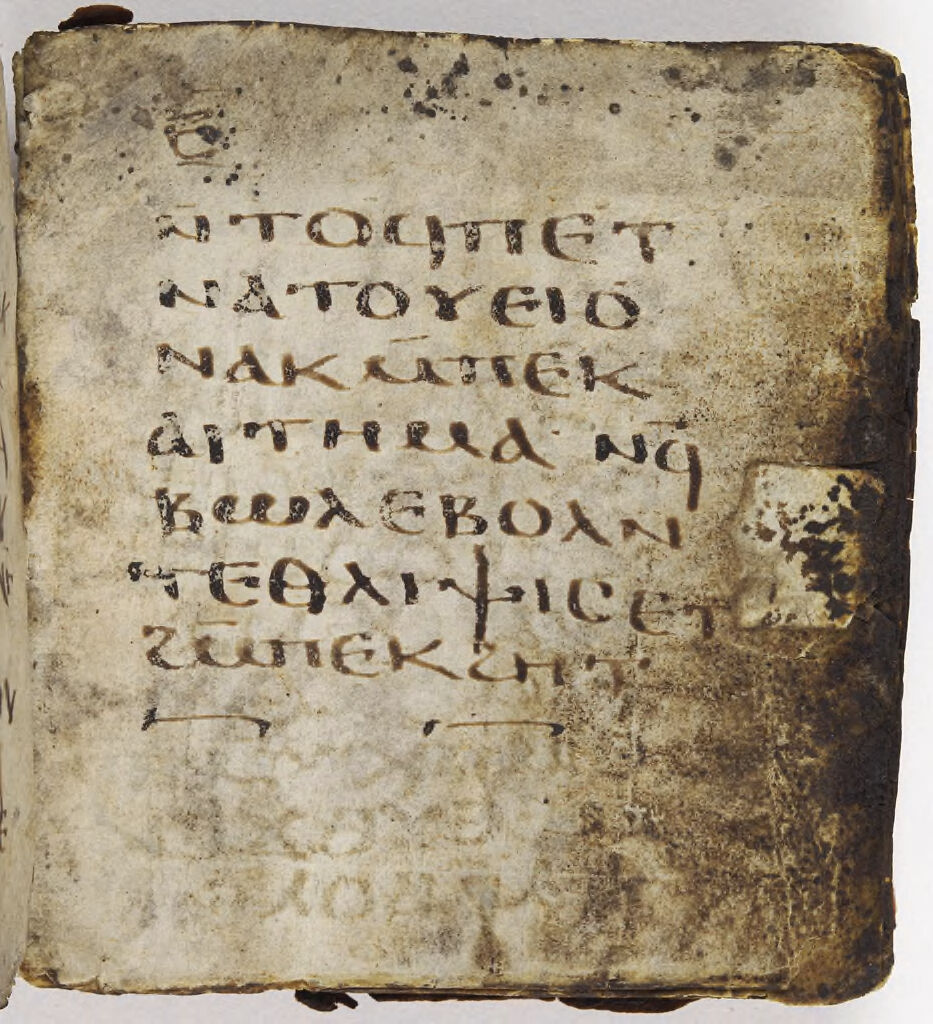 ⲉ̅
ⲛ̄ⲧⲟϥⲡⲉⲧ
ⲛⲁⲧⲟⲩⲉⲓⲟ
ⲛⲁⲕⲙ̄ⲡⲉⲕ
ⲁⲓⲧⲏⲙⲁ· ⲛϥ̄
ⲃⲱⲗⲉⲃⲟⲗⲛ
ⲧⲉⲑⲗⲓⲯⲓⲥⲉⲧ
ϩⲙ̄ⲡⲉⲕϩⲏⲧ·